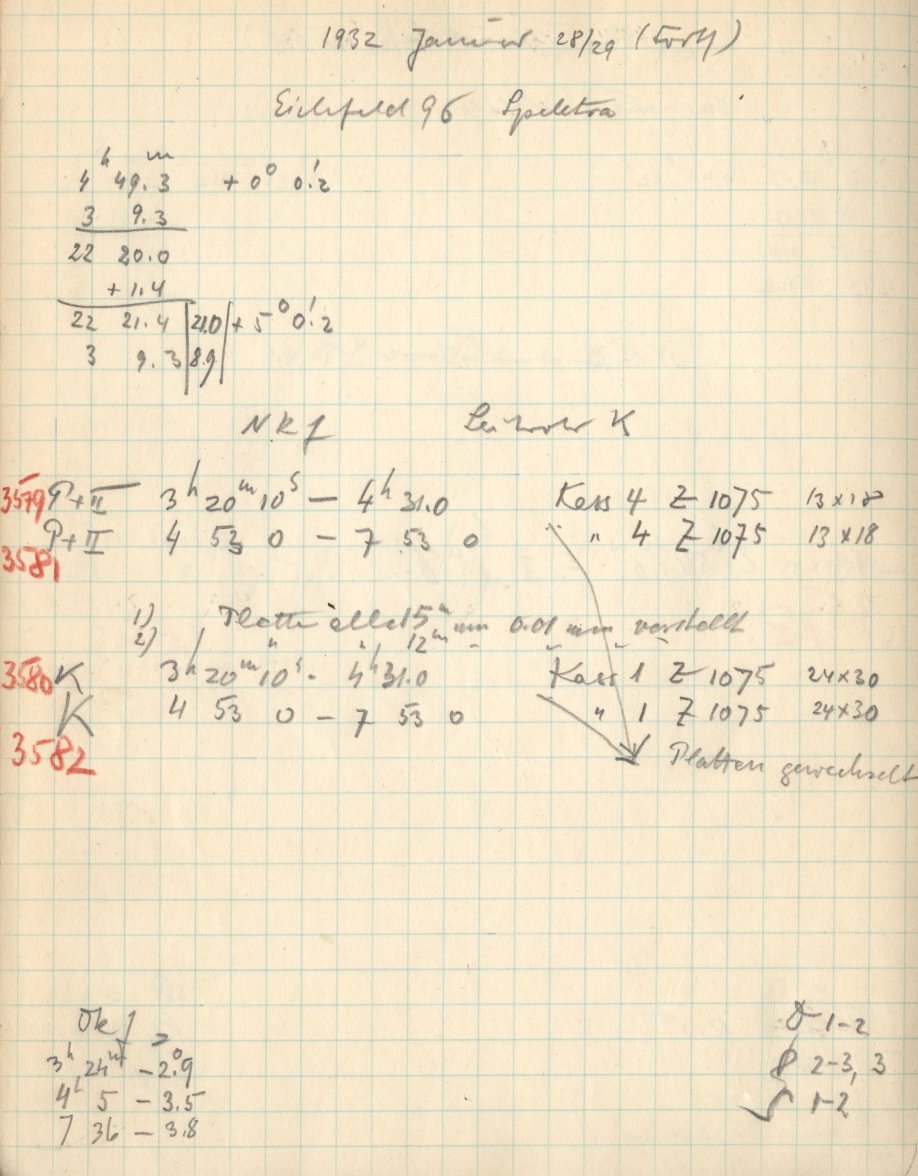 1932 Januar 28/29 (Forts)
Eichfeld 96 Spektra
4h 49m.3 + 0° 0!2
3 9.3
22 20.0
+1.4
22 21.4 21.0 + 5° 0!2
3 9.3 8.9
NK f Leitrohr K
3579 P+II 3h 20m 10s — 4h 31.0 Kass 4 Z 1075 13x18
P+II 4 53 0 — 7 53 0 " 4 Z 1075 13x18
3581
1) Platte alle 15m um 0.01 mm verstellt
2) " " 12m " " "
3580 K 3h 20m 10s - 4h 31.0 Kass 1 Z 1075 24x30
K 4 53 0 — 7 53 0 " 1 Z 1075 24x30
3582
Platten gewechselt
Ok f
3h 24m — 2°.9
4h 5 — 3.5
7 36 — 3.8
1-2
2-3, 3
1-2